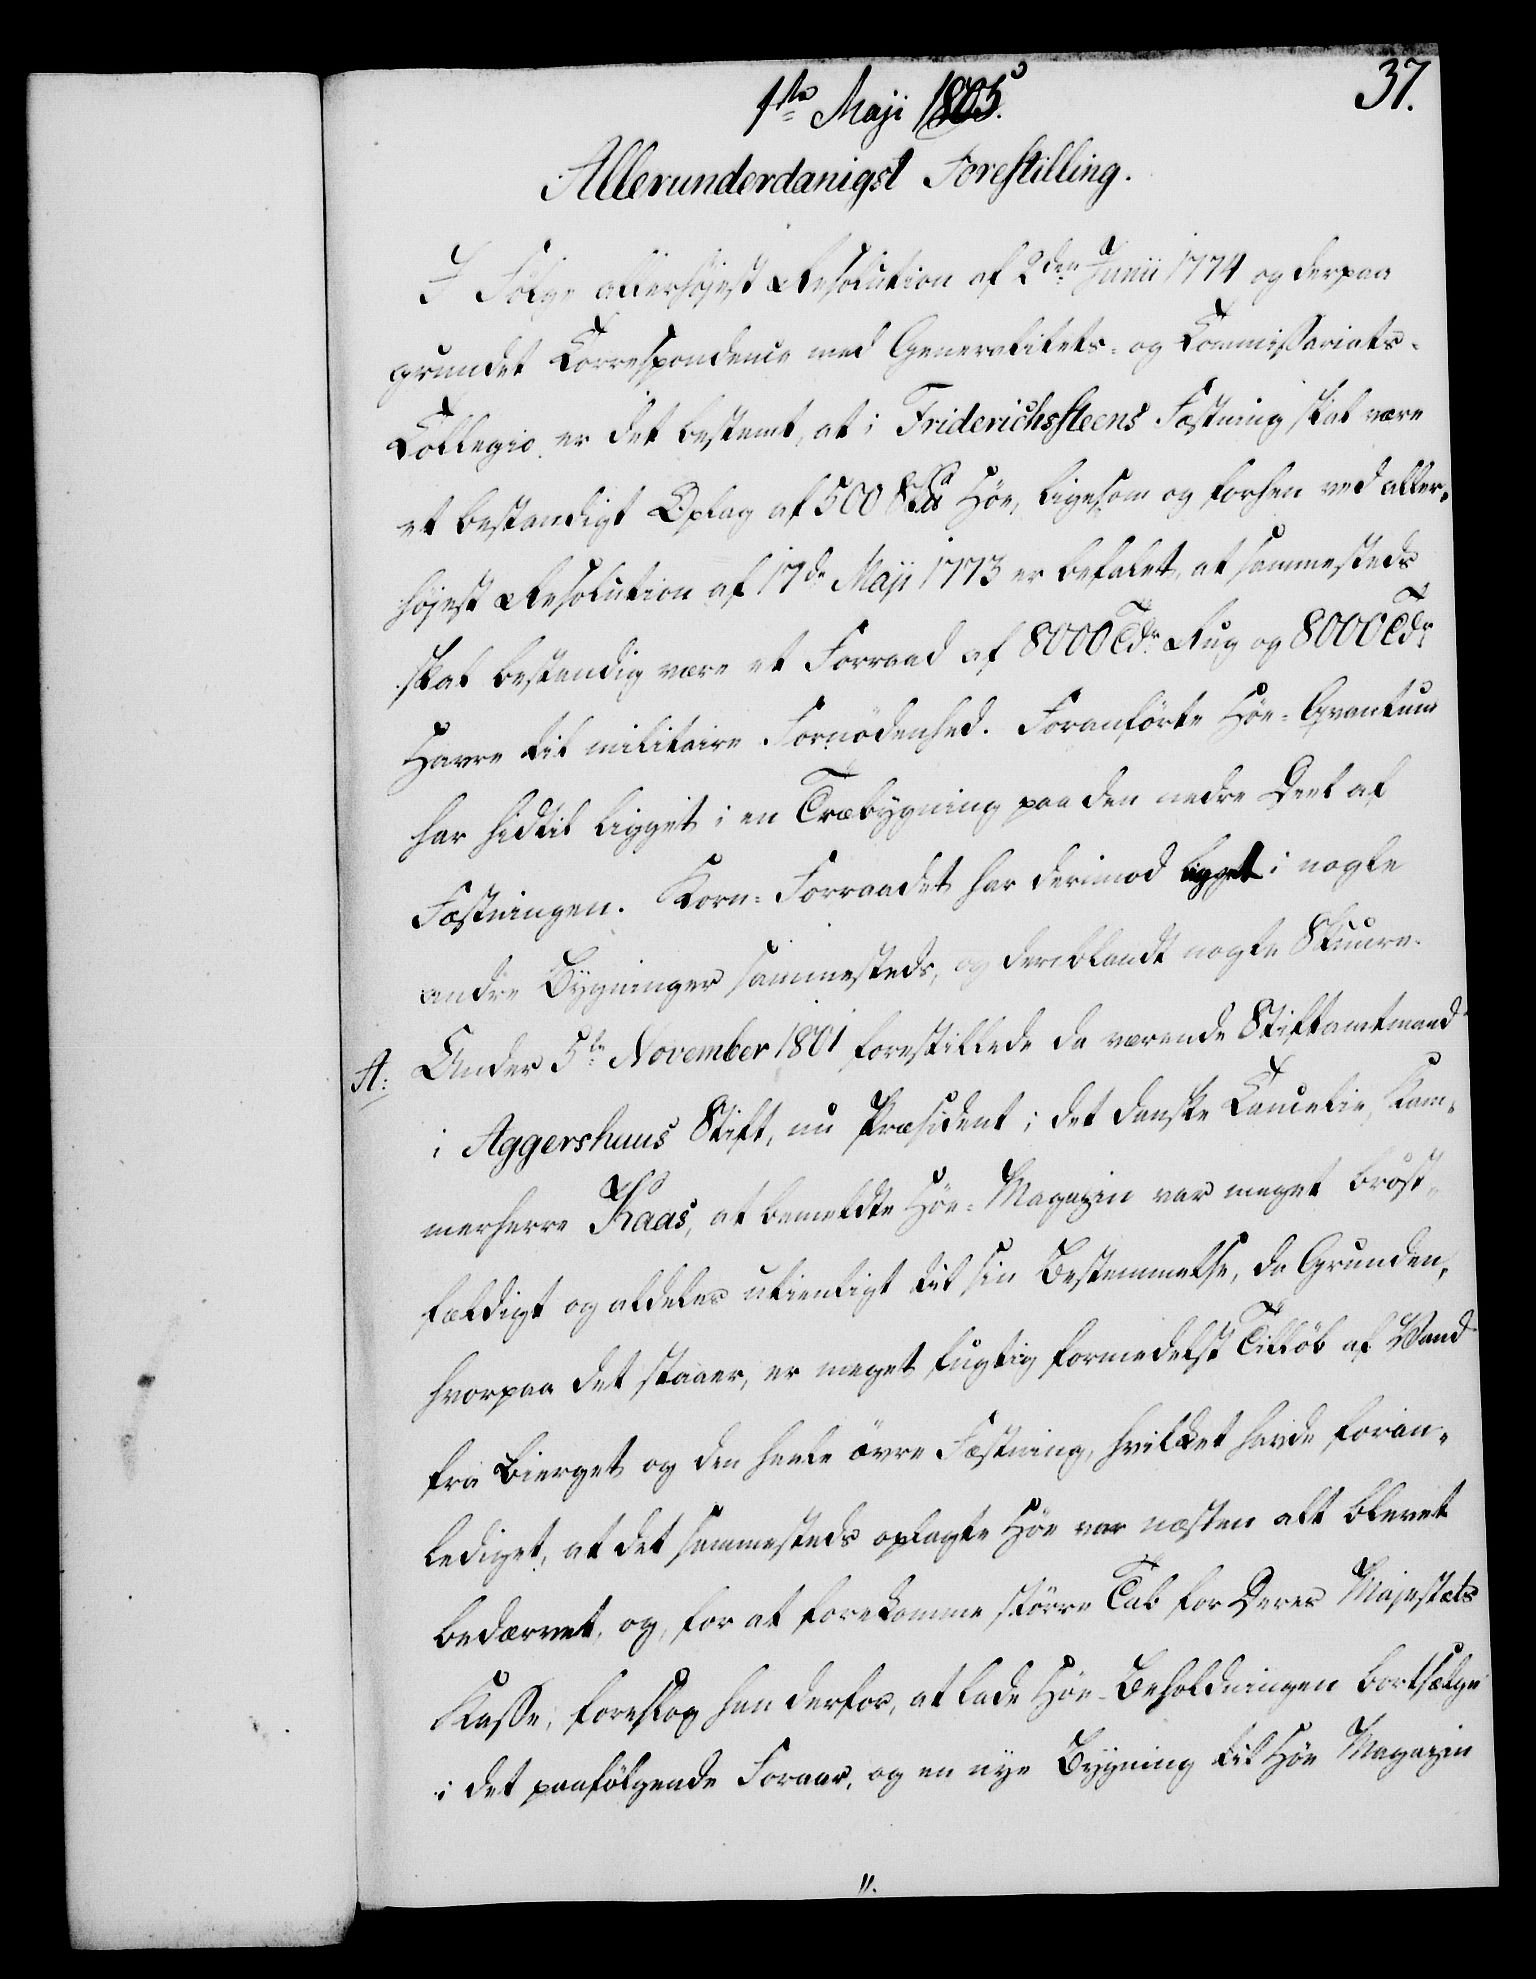 1ste Maji 1805.
37.
Allerunderdanigst Forestilling.
I Følge allerhøjest Resolution af 2den Junii 1774 og derpaa
grundet Correspondence med Generalitets- og Commissariats-
Collegio er det bestemt, at i Friderichssteens Fæstning skal være
et bestandigt Oplag af 500 Høe, ligesom og forhen ved aller-
højest Resolution af 17de Maji 1773 er befalet, at sammesteds
skal bestandig være et Forraad af 8000 Tdr Rug og 8000 Tdr
Havre til militaire Fornødenhed. Foranførte Høe-Qvantum
har hidtil ligget i en Træbygning paa den nedre Deel af
Fæstningen. Korn-Forraadet har derimod ligget i nogle
andre Bygninger sammesteds, og deriblandt nogle Skuure.
A: Under 5te November 1801 forestillede da værende Stiftamtmand
i Aggershuus Stift, nu Præsident i det danske Cancelie, Kam-
merherre Kaas, at bemeldte Høe-Magazin var meget brøst-
fældigt og aldeles utienligt til sin Bestemmelse, da Grunden,
hvorpaa det staaer, er meget fugtig formedelst Tilløb af Vand
fra Bierget og den heele øvre Fæstning, hvilket havde foran-
lediget, at det sammesteds oplagte Høe var næsten alt blevet
bedærvet, og, for at forekomme større Tab for Deres Majestæts
Kasse, foreslog han derfor, at lade Høe-Beholdningen bortsælge
i det paafølgende Foraar, og en nye Bygning til Høe Magazin